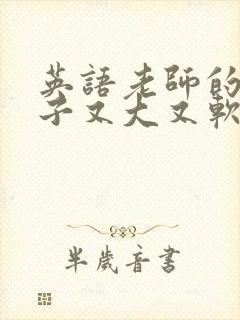 英語老師的
子又大又軟
半歲音書